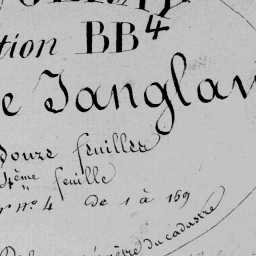 tion BB4
e Janglav
Douze feuilles
4ème feuille
r nº 4 De 1 à 169
du cadastre